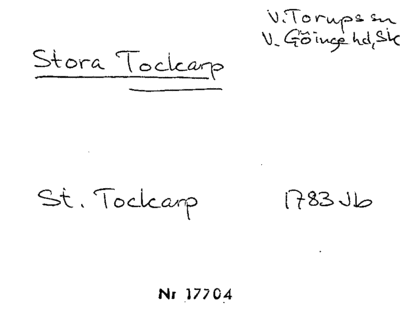 V. Torups sn
V. Göinge hd, Sk
Stora Tockarp
St. Tockarp 1783 Jb
Nr 17704